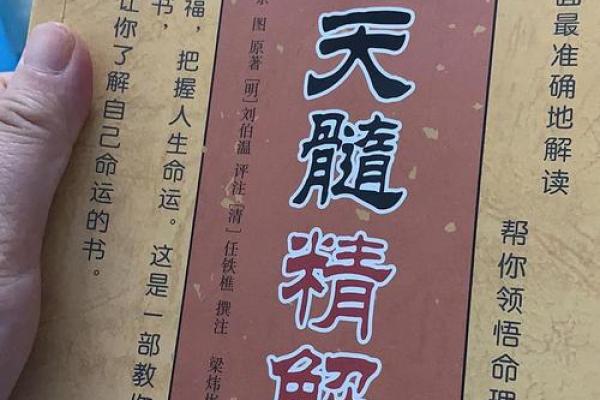 面最准确地解读
帮你领悟命理
天髓精解
图 原著 [明]刘伯温 评注 [清]任铁樵 撰注 梁炜
福，把握人生命运。这是一部教你
书，
让你了解自己命运的书。